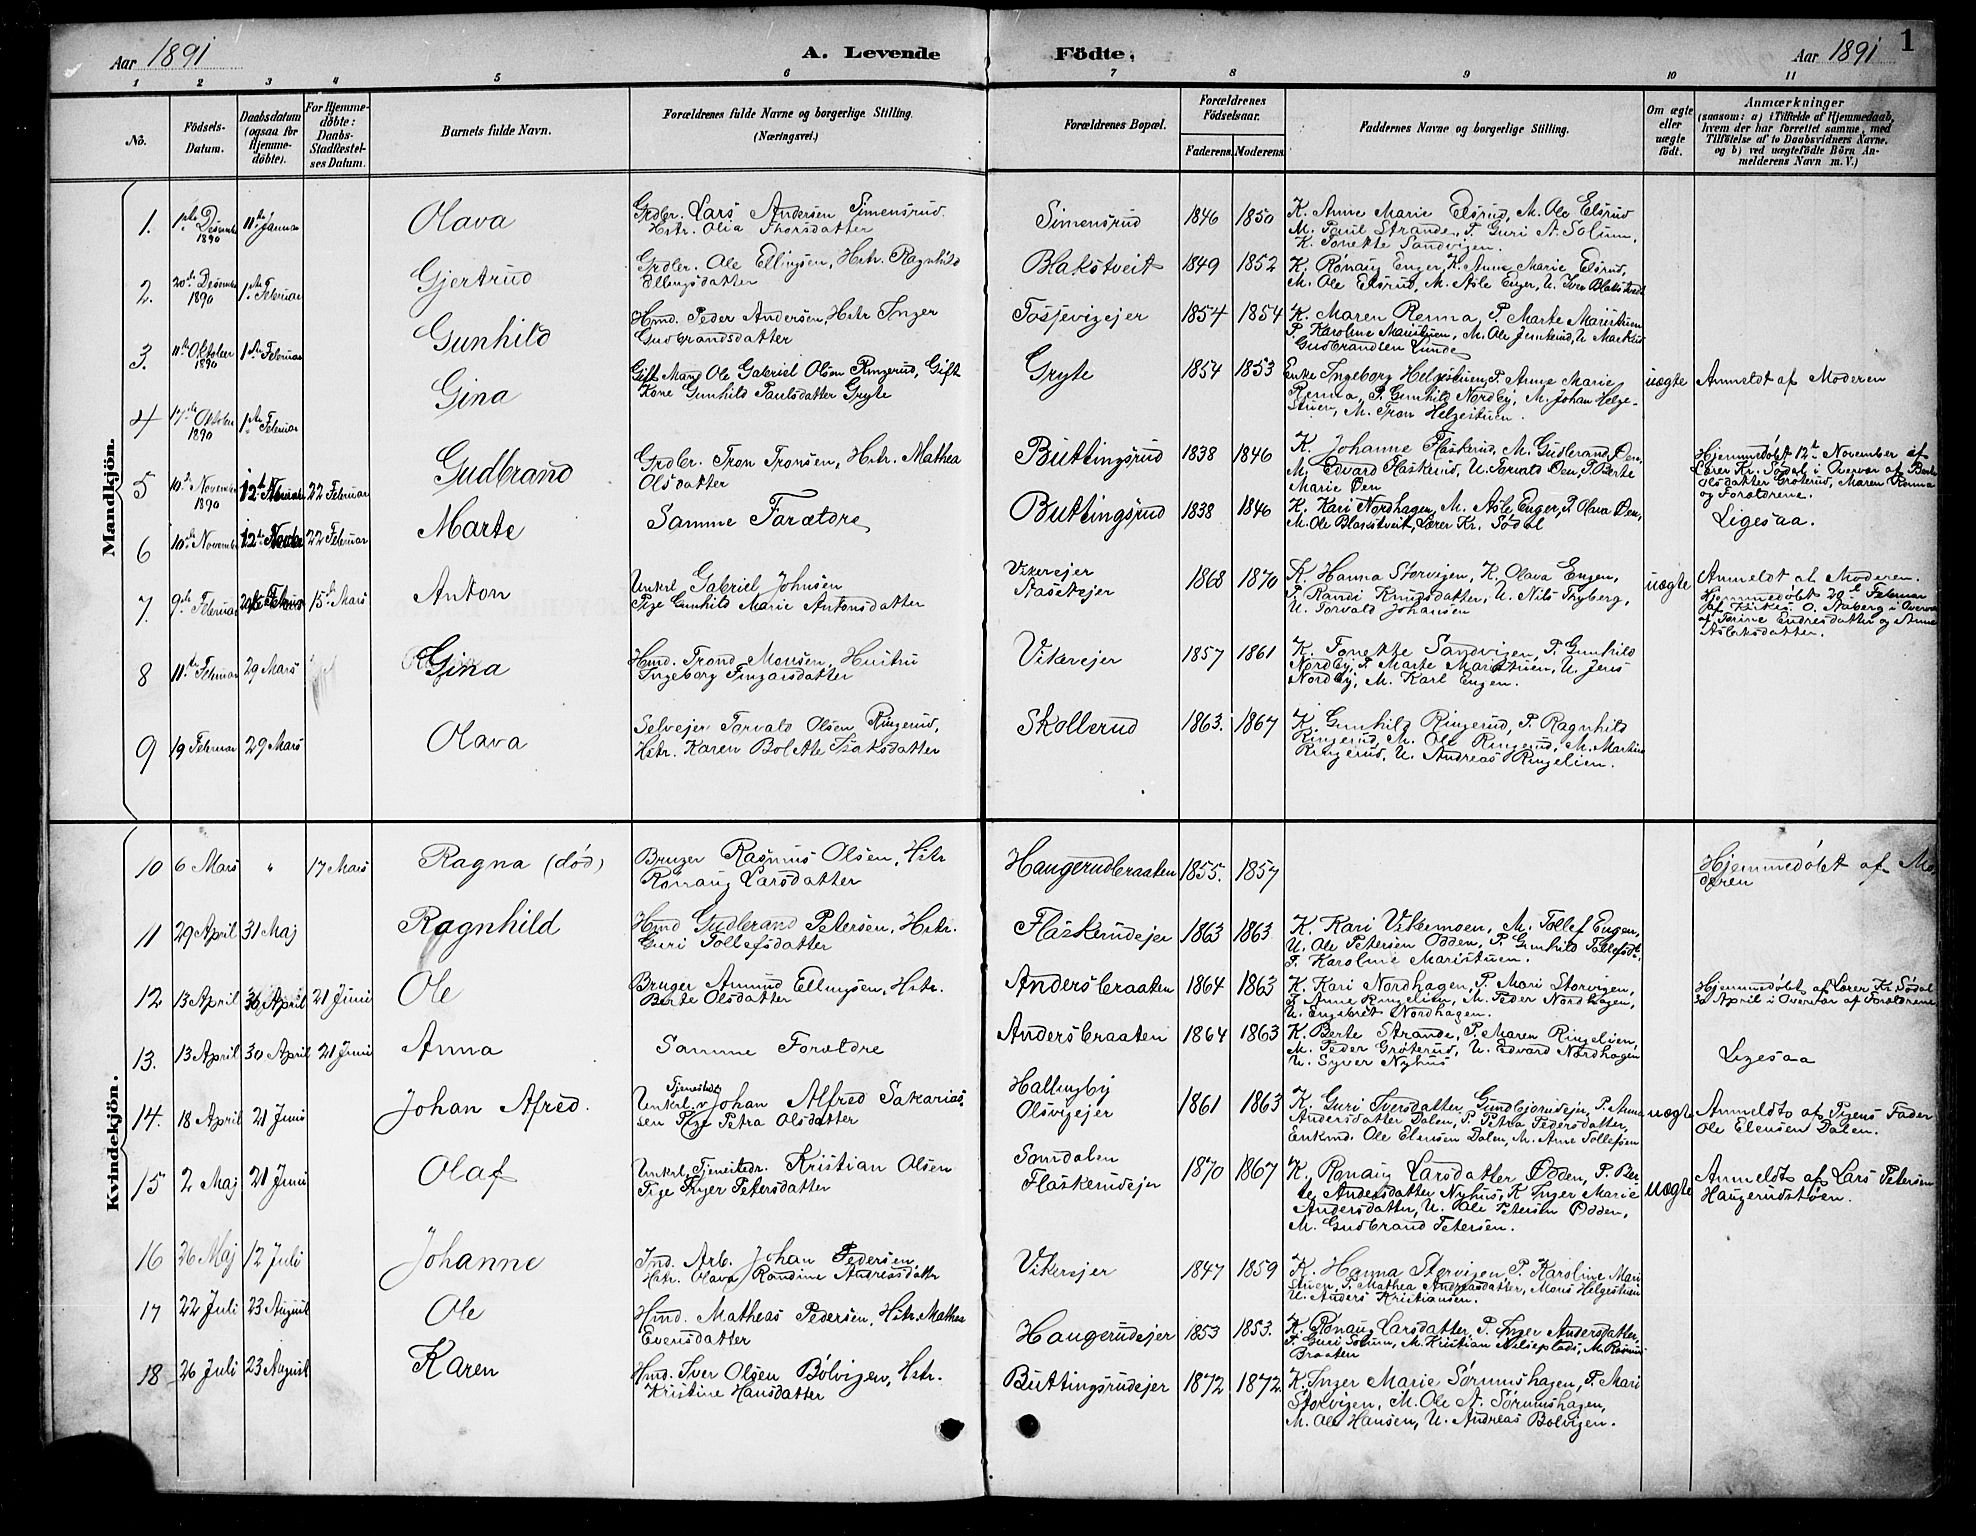 Aar 1891
A. Levende
Födte.
Aar 1891
1
1 2 3 4 5 6 7 8 9 10 11
No.
Födsels-Datum.
Daabsdatum (ogsaa for Hjemme-döbte).
For Hjemme-döbte: Daabs-Stadfæstel-ses Datum.
Barnets fulde Navn.
Forældrenes fulde Navne og borgerlige Stilling. (Næringsvei.)
Forældrenes Bopæl.
Forældrenes Födselsaar.
Faderens. Moderens.
Faddernes Navne og borgerlige Stilling.
Om ægte eller uægte födt.
Anmærkninger
(saasom: a) i Tilfælde af Hjemmedaab, hvem der har forrettet samme, med Tilföielse af to Daabsvidners Navne. og b) ved uægtefödte Börn An-melderens Navn m.V.)
Mandkjön.
1. 1ste Desember 1890 11te Januar Olava Grdbr. Lars Andersen Simensrud. Hstr. Olia Thorsdatter Simensrud 1846 1850 K. Anne Marie Elsrud, M. Ole Elsrud
M. Paul Strande, P. Guri A. Solum,
K. Tonette Sandvigen.
2. 20de Desember 1890 1ste Februar Gjertrud Grdbr. Ole Ellingsen, Hstr. Ragnhild Ellingsdatter Blakstveit 1849 1852 K. Rønaug Enger, K. Anne Marie Elsrud,
M. Ole Elsrud, M. Asle Enger, U. Iver Blakstveit
3. 11te Oktober 1890 1ste Februar Gunhild Hmd. Peder Andersen, Hstr Inger Gudbrandsdatter Tosjevigejer 1854 1854 K. Maren Renna, P. Marte Maristuen
P. Karoline Maristuen, M. Ole Jenserud, U. Markus
Gudbrandsen Lunde
4 17de Oktober 1890 1ste Februar Gina Gift Mand Ole Gabriel Olsen Ringerud, Gift Kone Gunhild Paulsdatter Gryte Gryte 1854 1853 Enke Ingeborg Helgestuen, P. Anne Marie
Renna, P. Gunhild Nordby, M. Johan Helge-
stuen, M. Tron Helgestuen. uægte Anmeldt af Moderen
5 10de November 1890 12te November 22 Februar Gudbrand Grdbr. Tron Tronsen, Hstr. Mathea Olsdatter Buttingsrud 1838 1846 K. Johanne Flaskerud, M. Gudbrand Øen,
M. Edvard Flaskerud, U. Torvald Øen, P. Berte
Marie Øen Hjemmedøbt 12te November af
Lærer Kr. Sødal i Overvær af Berte
Olsdatter Grøterud, Maren Renna
og Forældrene.
6 10de November 12te November 22 Februar Marte Samme Forældre Buttingsrud 1838 1846 K. Kari Nordhagen, M. Asle Enger, P. Olava Øen,
M. Ole Blakstveit, Lærer Kr. Sødal Ligesaa.
7. 9de Februar 15de Mars Anton Unkrl Gabriel Johnsen
Pige Gunhild Marie Antonsdatter Vikerejer
Aasetejer 1868 1870 K. Hanna Storvigen, K. Olava Engen,
P. Randi Knudsdatter, U. Nils Fryberg,
U. Torvald Johansen uægte Anmeldt af Moderen.
Hjemmedøbt 20de Februar
af Kirkes. O. Aaberg i Overvær
af Torine Endresdatter og Anne
Aslaksdatter.
8 11te Februar 29 Mars Gina Hmd. Trond Monsen, Hustru
Ingeborg Fingarsdatter Vikerejer 1857 1861 K. Tonette Sandvigen, P. Gunhild
Nordby, P. Marte Maristuen, U. Jens
Nordby, M. Karl Engen.
9 19 Februar 29 Mars Olava Selvejer Torvald Olsen Ringerud,
Hstr. Karen Bolette Isaksdatter Skollerud 1863. 1867 K. Gunhild Ringerud, P. Ragnhild
Ringerud, M. Ole Ringerud, M. Martin
Ringerud, U. Andreas Ringelien.
Kvindekjön.
10 6 Mars " 17 Mars Ragna (død) Bruger Rasmus Olsen, Hstr
Rønaug Larsdatter Haugerudbraaten 1855. 1857 Hjemmedøbt af Mo-
deren
11 29 April 31 Maj Ragnhild Hmd Gudbrand Petersen, Hstr.
Guri Tollefsdatter Flaskerudejer 1863 1863 K. Kari Vikermoen, M. Tollef Engen,
U. Ole Petersen Odden, P. Gunhild Tollefsdt.
P. Karoline Maristuen.
12 13 April 30 April 21 Juni Ole Bruger Amund Ellingsen, Hstr.
Berte Olsdatter Andersbraaten 1864 1863 K. Kari Nordhagen, P. Mari Storvigen,
P. Anne Ringelien, M. Peder Nordhagen,
U. Engebret Nordhagen. Hjemmedøbt af Lærer Kr. Sødal
30 April i Overvær af Forældrene
13. 13 April 30 April 21 Juni Anna Samme Forældre Andersbraaten 1864 1863 K. Berte Strande, P. Maren Ringelien,
M. Peder Grøterud, U. Edvard Nordhagen
U. Syver Nyhus Ligesaa
14. 18 April 21 Juni Johan Alfred. Unkrl. Tjenestedr. Johan Alfred Sakarias-
sen Pige Petra Olsdatter Hallingby
Olsvigejer 1861 1863 K. Guri Iversdatter Gundbjørudejer, P. Anna
Andersdatter Dalen, P. Petra Pedersdatter,
Enkmd. Ole Elensen Dalen, M. Arne Tollefsen uægte Anmeldt af Pigens Fader
Ole Elensen Dalen.
15 2 Maj 21 Juni Olaf Unkrl. Tjenestedr. Kristian Olsen
Pige Inger Petersdatter Samdalen
Flaskerudejer 1870 1867 K. Rønaug Larsdatter Odden, P. Ber-
te Andersdatter Nyhus, K. Inger Marie
Andersdatter, U. Ole Petersen Odden,
M. Gudbrand Petersen. uægte Anmeldt af Lars Petersen
Haugerudstøen.
16 Maj 12 Juli Johanne Ind. Arb. Johan Pedersen,
Hstr. Olava Randine Andreasdatter Vikerejer 1847 1859 K. Hanna Storvigen, P. Karoline Mari-
stuen, P. Mathea Andreasdatter, Mons Helgestuen
U. Anders Kristiansen.
17 22 Juli 23 August Ole Hmd. Mathias Pedersen, Hstr. Mathea
Evensdatter Haugerudejer 1853 1853. K. Rønaug Larsdatter, P. Inger Andersdatter,
P. Guri Solum, M. Kristian Nilseplads, M. Rasmus
Braaten
18 26 Juli 23 August Karen Hmd. Iver Olsen Bølvigen, Hstr.
Kristine Hansdatter Buttingsrudejer 1872 1872. K. Inger Marie Sørumshagen, P. Mari
Storvigen, M. Ole A. Sørumshagen,
M. Ole Hansen, U. Andreas Bølvigen.